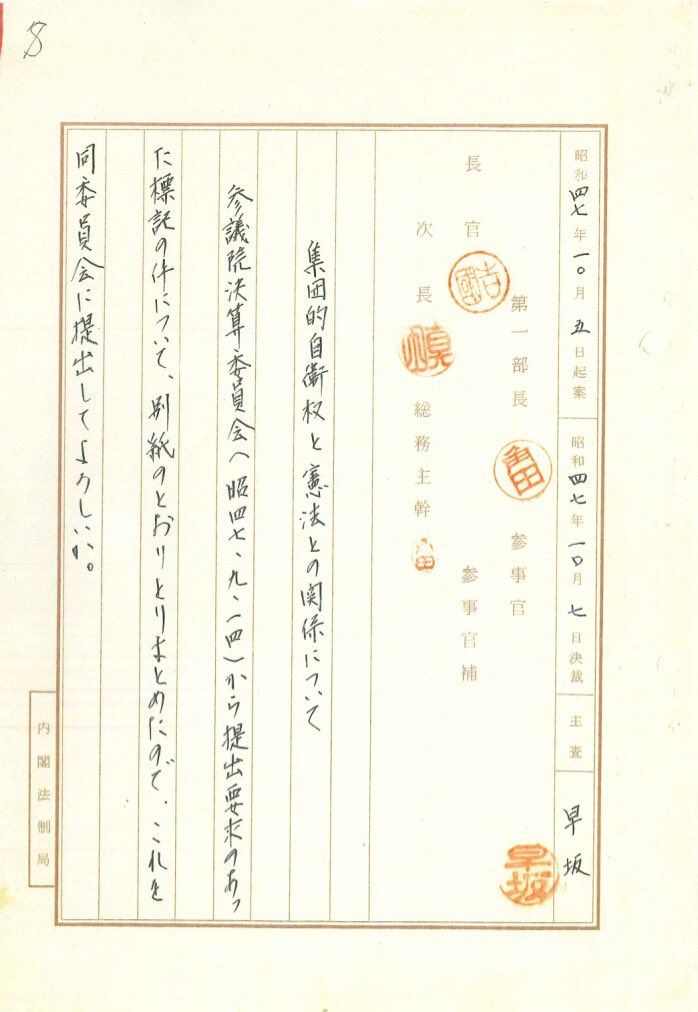 8
昭和四七年一〇月五日起案
昭和四七年一〇月七日決裁
主査
早坂
早坂
第一部長
角田
参事官
長官
吉國
参事官補
次長
眞
総務主幹
集団的自衛权と憲法との関係について
参議院決算委員会(昭四七、九、一四)から提出要求のあっ
た標記の件について、別紙のとおりとりまとめたので、これを
同委員会に提出してよろしいか。
内閣法制局